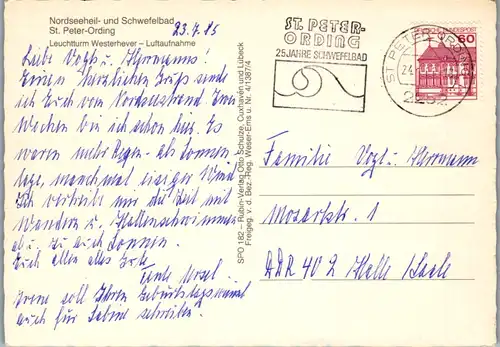 Nordseeheil- und Schwefelbad
St. Peter-Ording
Leuchtturm Westerhever – Luftaufnahme
23.7.85
Liebe Vogts u. Herrmanns!
Einen herzlichen Gruß sende
ich Euch vom Nordseestrand. Zwei
Wochen bin ich schon hier. Es
waren mehr Regen- als Sonnen-
tage, manchmal eisiger Wind
Ich vertreibe mir die Zeit mit
Wandern u. Hallenschwimmen
ab u. zu auch Sonnen.
Euch allen alles Gute
Eure
Irene soll Ihren Geburtstag
auch für Sabine schreiben.
SPO 182 – Rubin-Verlag Otto Schulze, Cuxhaven und Lübeck
Freigeg. v. d. Bez.-Reg. Weser-Ems u. Nr. 4/1387/4
ST. PETER-
ORDING
25 JAHRE SCHWEFELBAD
ST PETER-ORDING
24.
2252
60
Familie Vogt-Herrmann
Mozartstr. 1
DDR 402 Halle/Saale